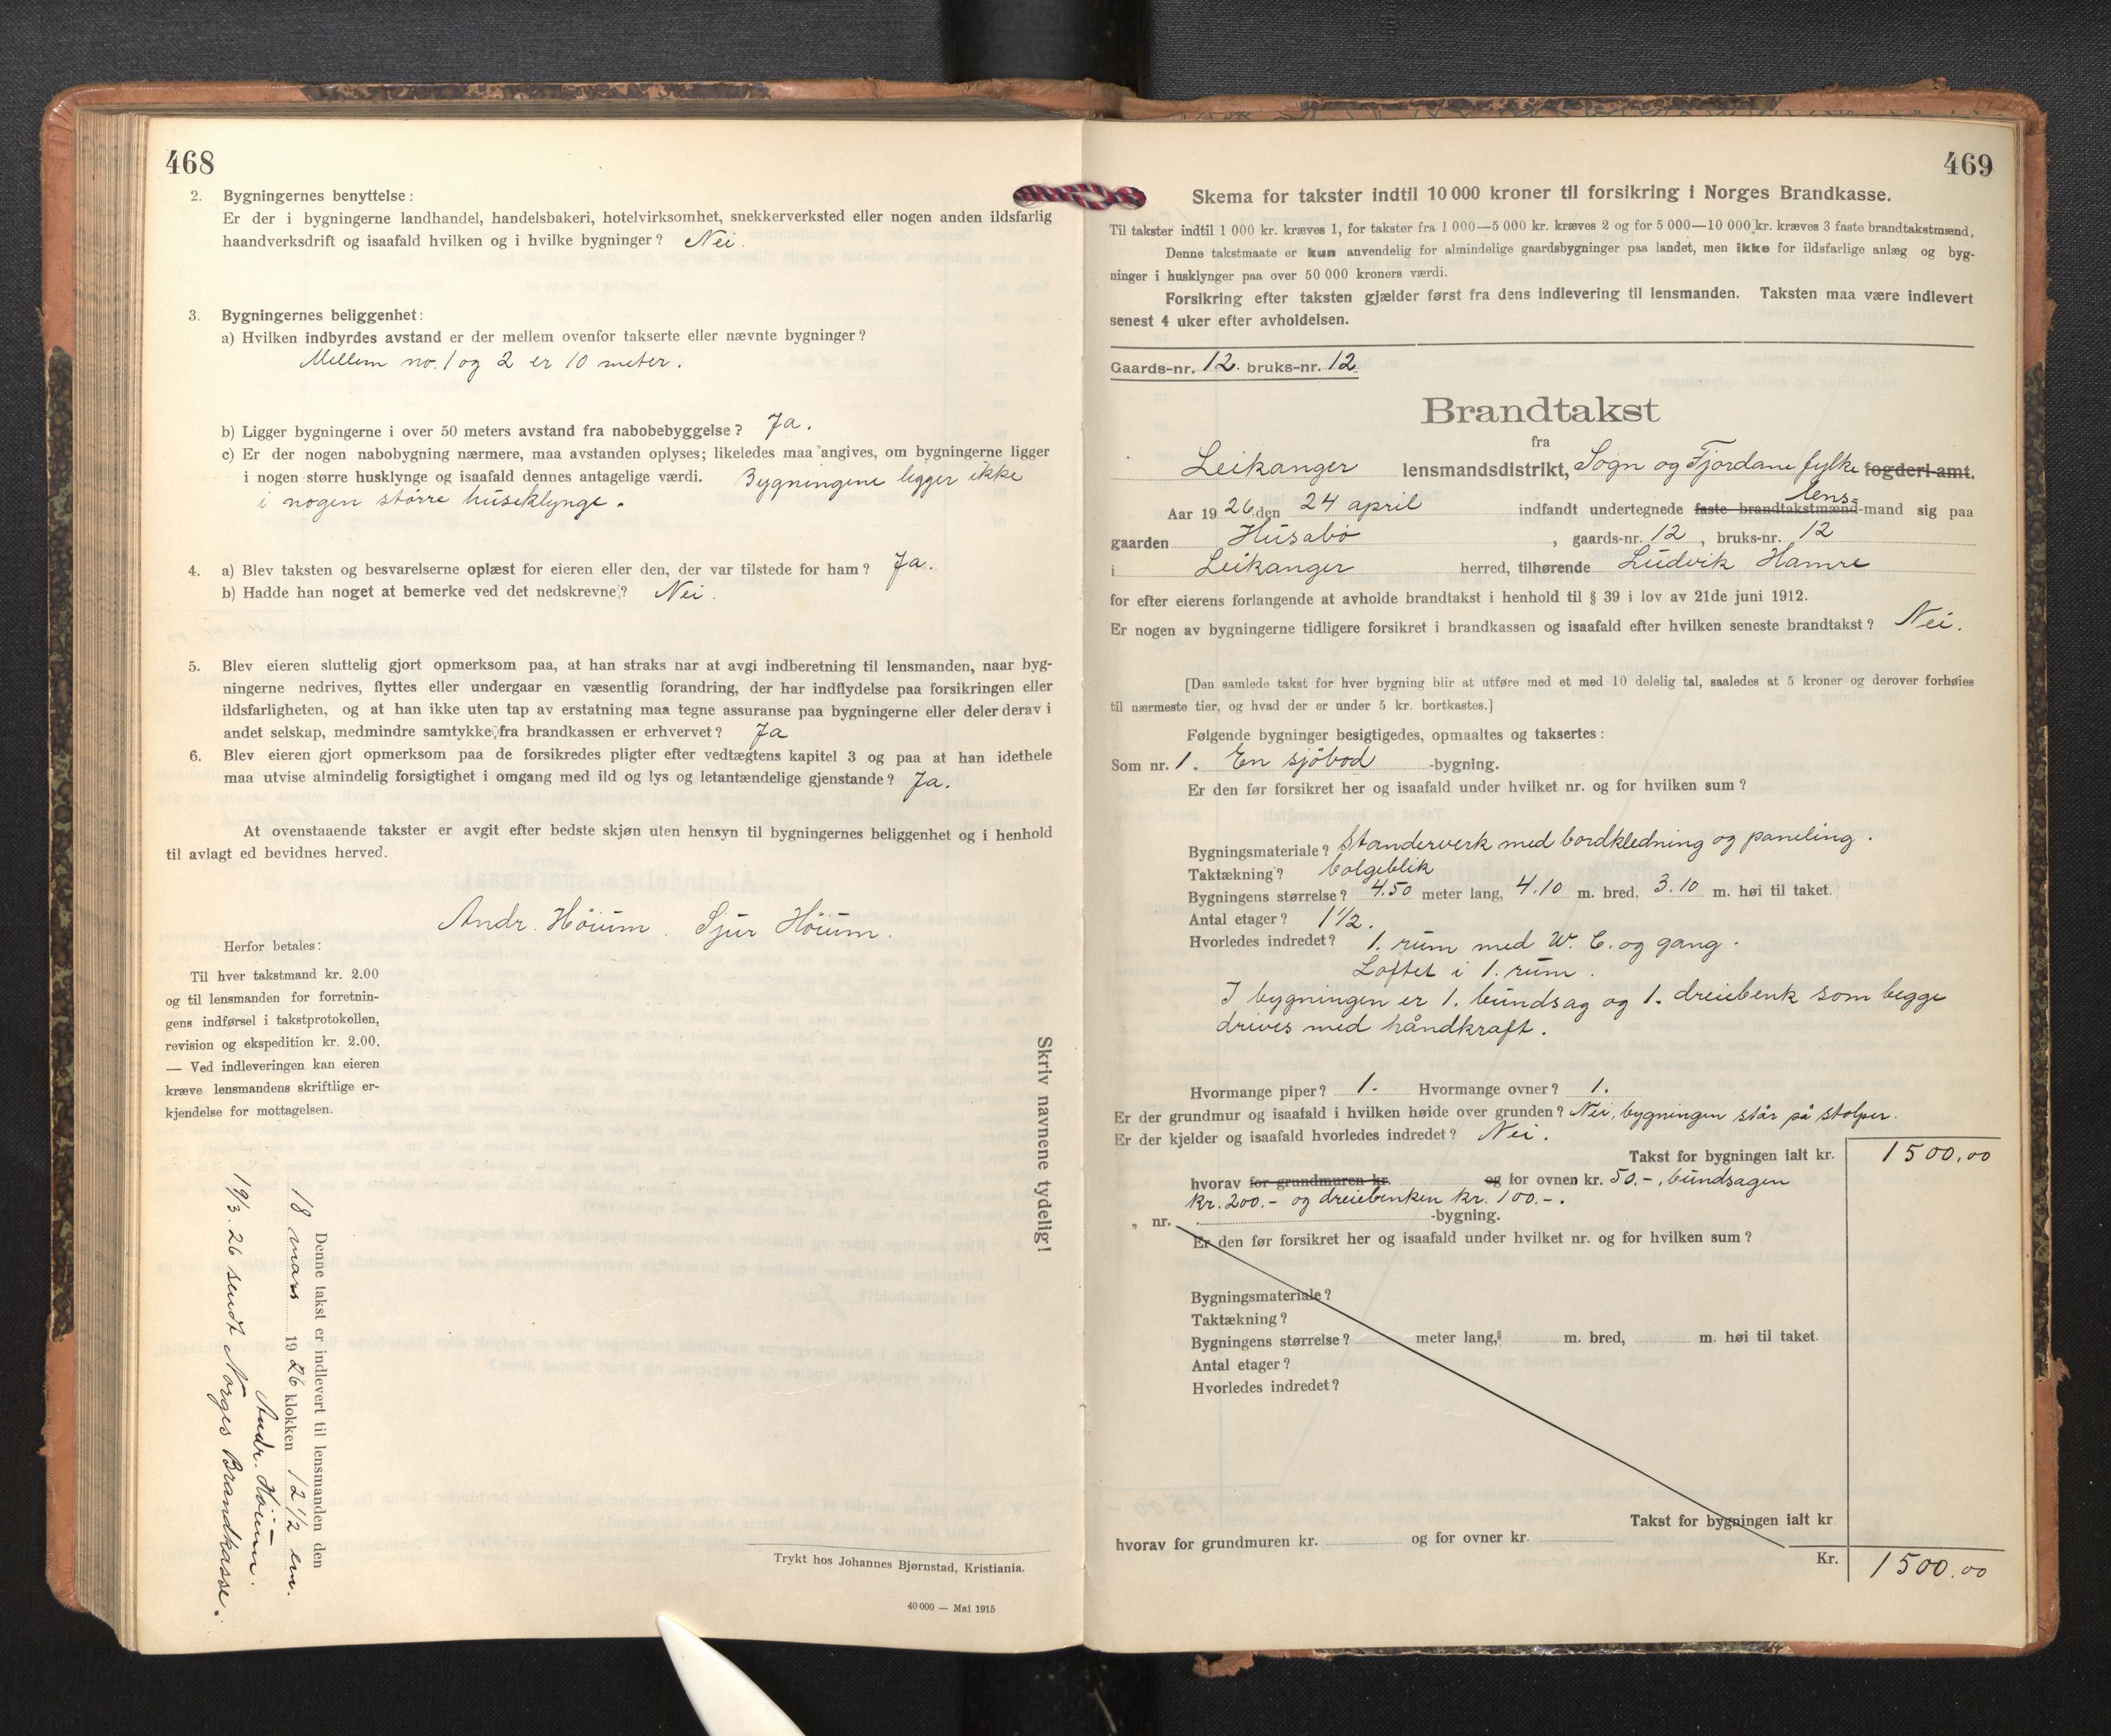 468
2. Bygningernes benyttelse:
Er der i bygningerne landhandel, handelsbakeri, hotelvirksomhet, snekkerverksted eller nogen anden ildsfarlig
haandverksdrift og isaafald hvilken og i hvilke bygninger? Nei.
3. Bygningernes beliggenhet:
a) Hvilken indbyrdes avstand er der mellem ovenfor takserte eller nævnte bygninger?
Mellem no. 1 og 2 er 10 meter.
b) Ligger bygningerne i over 50 meters avstand fra nabobebyggelse? Ja.
c) Er der nogen nabobygning nærmere, maa avstanden oplyses; likeledes maa angives, om bygningerne ligger
i nogen større husklynge og isaafald dennes antagelige værdi. Bygningene ligger ikke
i nogen större huseklynge.
4. a) Blev taksten og besvarelserne oplæst for eieren eller den, der var tilstede for ham? Ja.
b) Hadde han noget at bemerke ved det nedskrevne? Nei.
5. Blev eieren sluttelig gjort opmerksom paa, at han straks har at avgi indberetning til lensmanden, naar byg-
ningerne nedrives, flyttes eller undergaar en væsentlig forandring, der har indflydelse paa forsikringen eller
ildsfarligheten, og at han ikke uten tap av erstatning maa tegne assuranse paa bygningerne eller deler derav i
andet selskap, medmindre samtykke fra brandkassen er erhvervet? Ja
6. Blev eieren gjort opmerksom paa de forsikredes pligter efter vedtægtens kapitel 3 og paa at han idethele
maa utvise almindelig forsigtighet i omgang med ild og lys og letantændelige gjenstande? Ja.
At ovenstaaende takster er avgit efter bedste skjøn uten hensyn til bygningernes beliggenhet og i henhold
til avlagt ed bevidnes herved.
Andr. Höium. Sjur Höium.
Herfor betales:
Til hver takstmand kr. 2.00
og til lensmanden for forretnin-
gens indførsel i takstprotokollen,
revision og ekspedition kr. 2.00.
— Ved indleveringen kan eieren
kræve lensmandens skriftlige er-
kjendelse for mottagelsen.
Skriv navnene tydelig!
Denne takst er indlevert til lensmanden den
18 mars 1926 klokken 12 1/2 em.
Andr. Höium.
19/3. 26 sendt Norges Brandkasse.
Trykt hos Johannes Bjørnstad, Kristiania.
40 000 — Mai 1915
469
Skema for takster indtil 10 000 kroner til forsikring i Norges Brandkasse.
Til takster indtil 1 000 kr. kræves 1, for takster fra 1 000—5 000 kr. kræves 2 og for 5 000—10 000 kr. kræves 3 faste brandtakstmænd.
Denne takstmaate er kun anvendelig for almindelige gaardsbygninger paa landet, men ikke for ildsfarlige anlæg og byg-
ninger i husklynger paa over 50 000 kroners værdi.
Forsikring efter taksten gjælder først fra dens indlevering til lensmanden. Taksten maa være indlevert
senest 4 uker efter avholdelsen.
Gaards-nr. 12. bruks-nr. 12
Brandtakst
fra
Leikanger lensmandsdistrikt, Sogn og Fjordane fylke fogderi amt.
lens-
Aar 1926 den 24 april indfandt undertegnede faste brandtakstmænd-mand sig paa
gaarden Husabö, gaards-nr. 12, bruks-nr. 12
i Leikanger herred, tilhørende Ludvik Hamre
for efter eierens forlangende at avholde brandtakst i henhold til § 39 i lov av 21de juni 1912.
Er nogen av bygningerne tidligere forsikret i brandkassen og isaafald efter hvilken seneste brandtakst? Nei.
[Den samlede takst for hver bygning blir at utføre med et med 10 delelig tal, saaledes at 5 kroner og derover forhøies
til nærmeste tier, og hvad der er under 5 kr. bortkastes.]
Følgende bygninger besigtigedes, opmaaltes og taksertes:
Som nr. 1. En sjöbod -bygning.
Er den før forsikret her og isaafald under hvilket nr. og for hvilken sum?
Bygningsmateriale? Standerverk med bordkledning og paneling.
Taktækning? bølgeblik
Bygningens størrelse? 4.50 meter lang, 4.10 m. bred, 3.10 m. høi til taket.
Antal etager? 1 1/2.
Hvorledes indredet? 1. rum med W. C. og gang.
Loftet i 1. rum.
I bygningen er 1. bundsag og 1. dreiebenk som begge
drives med håndkraft.
Hvormange piper? 1. Hvormange ovner? 1.
Er der grundmur og isaafald i hvilken høide over grunden? Nei, bygningen står på stolper.
Er der kjelder og isaafald hvorledes indredet? Nei.
Takst for bygningen ialt kr. 1500,00
hvorav for grundmuren kr. og for ovnen kr. 50.-, bundsagen
kr. 200.- og dreiebenken kr. 100.-.
„ nr. -bygning.
Er den før forsikret her og isaafald under hvilket nr. og for hvilken sum?
Bygningsmateriale?
Taktækning?
Bygningens størrelse? meter lang, m. bred, m. høi til taket.
Antal etager?
Hvorledes indredet?
Takst for bygningen ialt kr
hvorav for grundmuren kr. og for ovner kr.
Kr. 1500.00